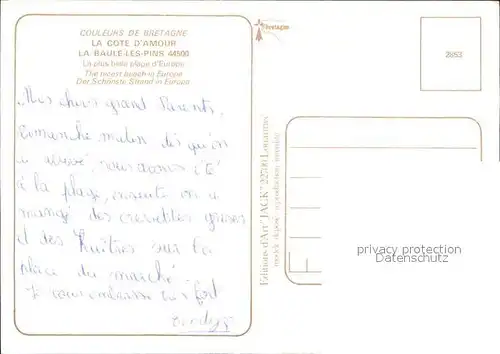 COULEURS DE BRETAGNE
LA COTE D'AMOUR
LA BAULE-LES-PINS 44500
La plus belle plage d'Europe
The nicest beach in Europe
Der Schönste Strand in Europa
Mes chers grand Parents,
Dimanche matin dès qu'on
a arrivé, nous avons été
à la plage, ensuite on a
mangé des crevettes grises
et des huîtres sur la
place du marché.
Je vous embrasse très fort
Bretagne
2953
Editions d'Art "JACK" 22700 Louannec
modèle déposé reproduction interdite
F
privacy protection
Datenschutz